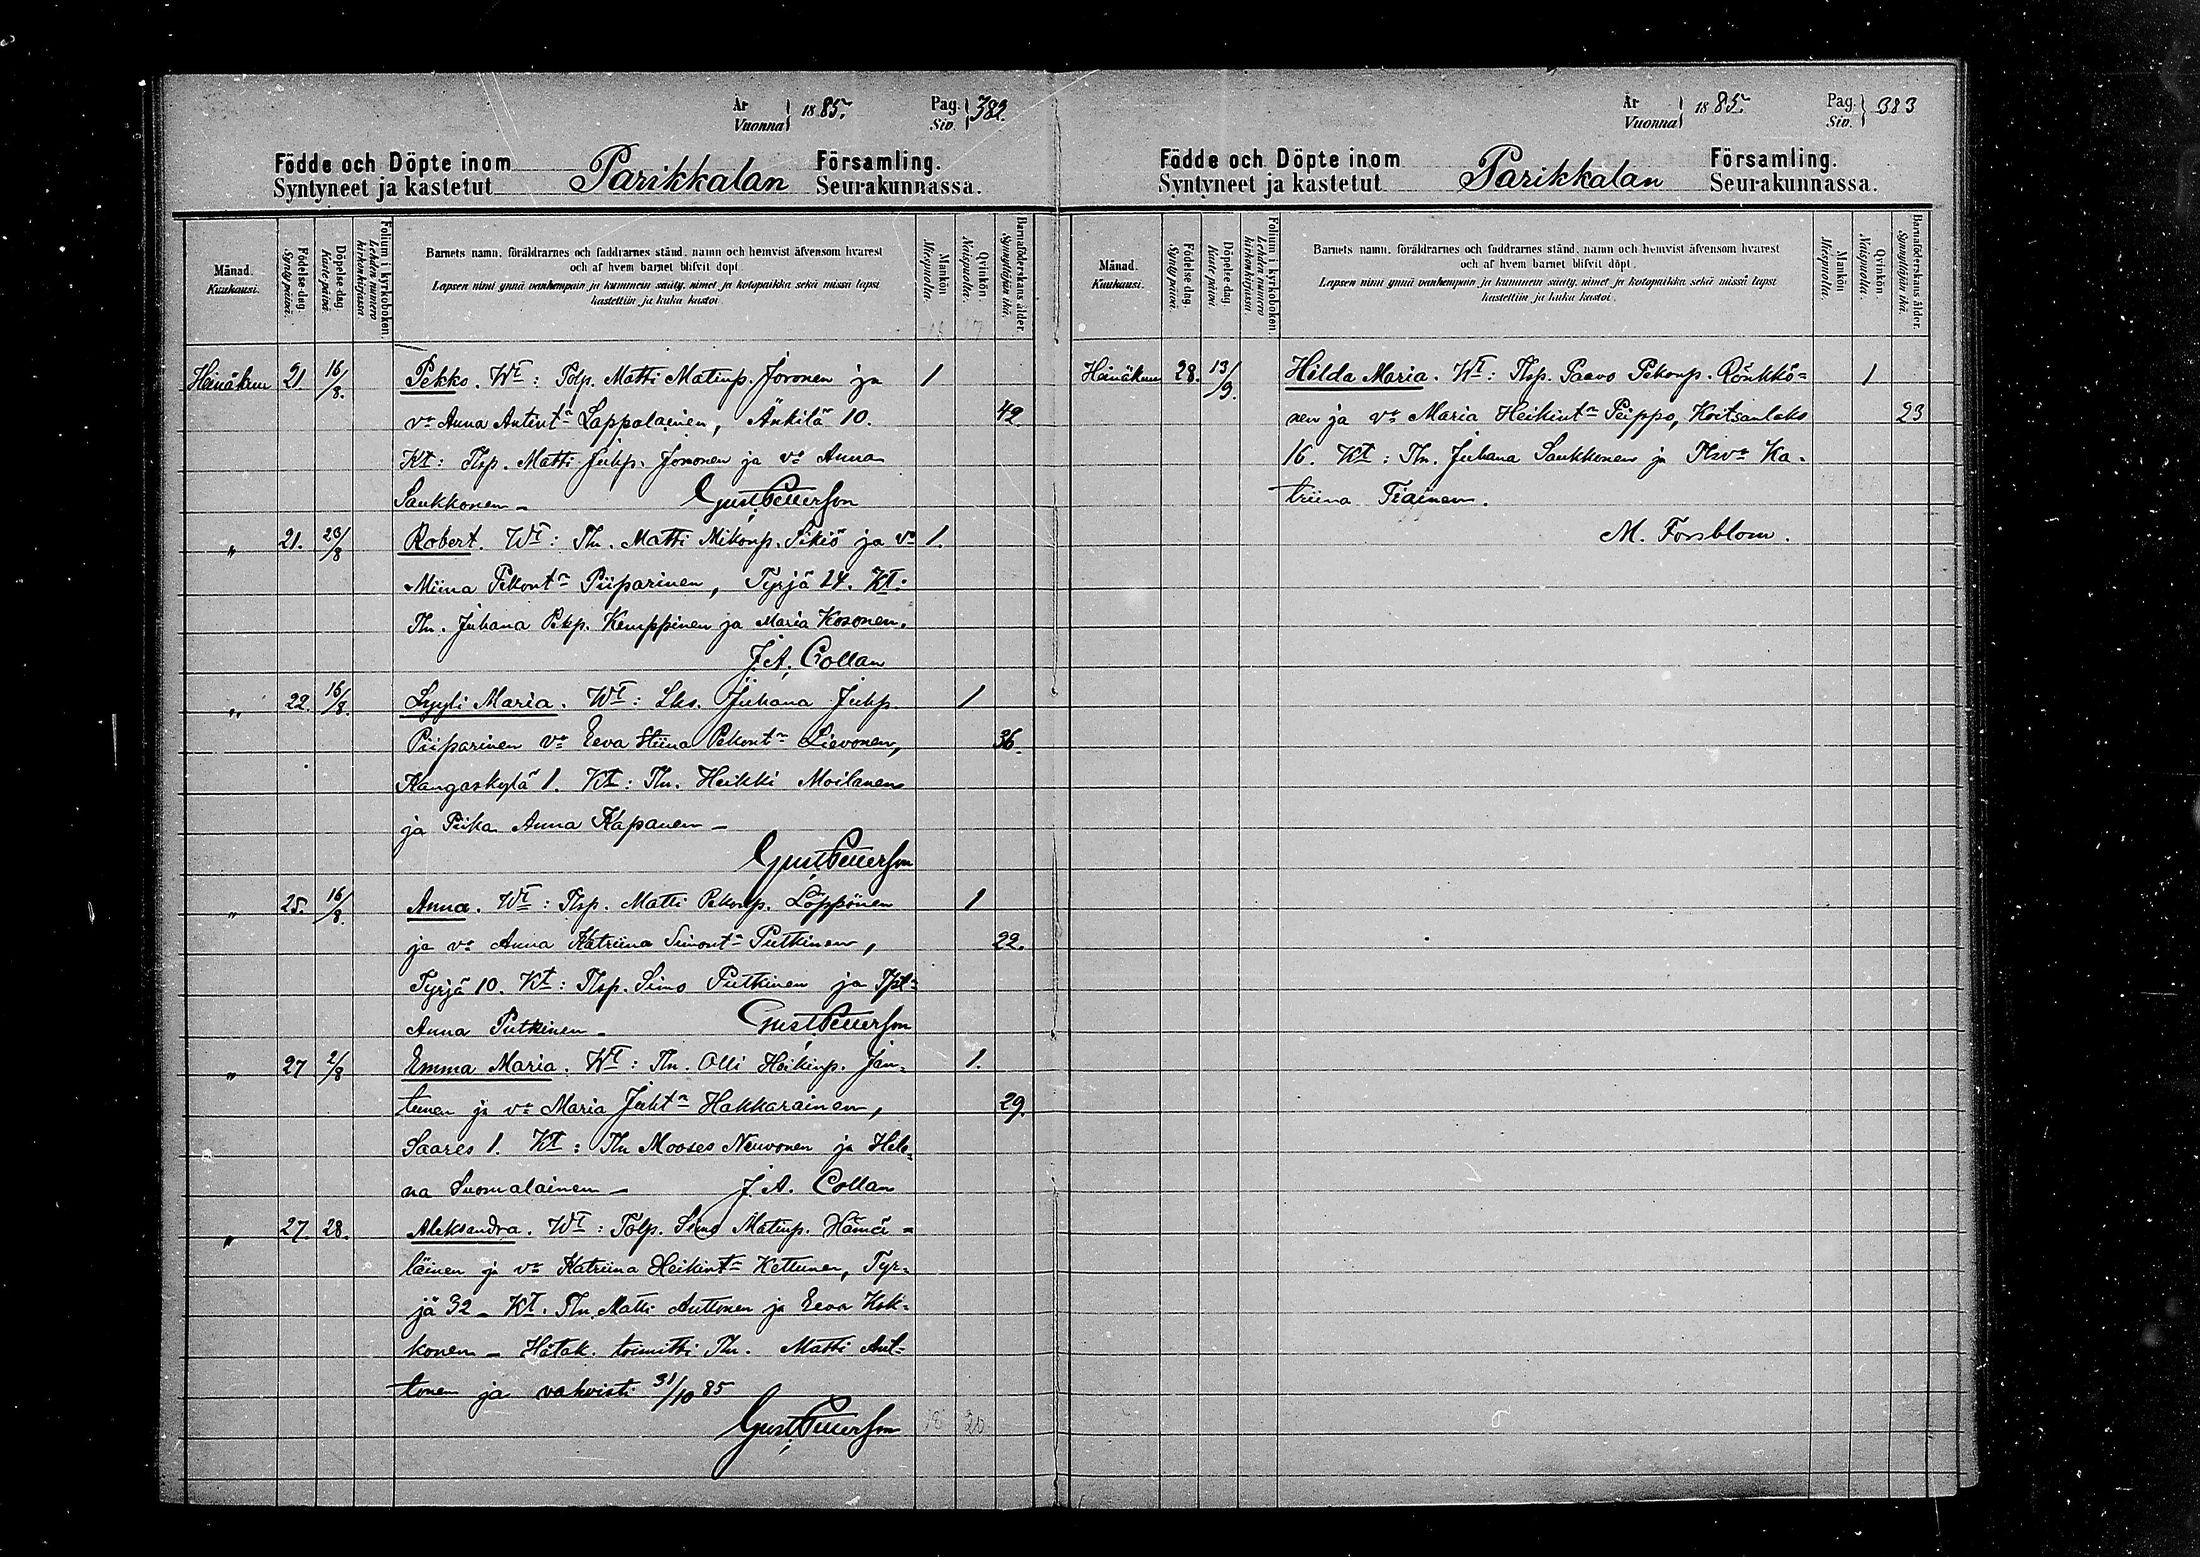 År
Vuonna 1885. Pag.
Siv. 382.
Födde och Döpte inom Parikkalan Församling.
Syntyneet ja kastetut Seurakunnassa.
Månad.
Kuukausi.
Födelse-dag.
Syntypäivä.
Döpelse-dag.
Kastepäivä.
Folium i kyrkoboken.
Lehden numero kirkonkirjassa
Barnets namn, föräldrarnes och faddrarnes stånd, namn och hemvist äfvensom hvarest
och af hvem barnet blifvit döpt.
Lapsen nimi ynnä vanhempain ja kummein sääty, nimet ja kotopaikka sekä missä lapsi
kastettiin ja kuka kastoi.
Mankön
Miespuolta.
Qvinkön.
Naispuolta.
Barnaföderskans ålder.
Synnyttäjän ikä.
Heinäkuu 21. 16/8. Pekko. Wt: Tolp. Matti Matinp. Joronen ja 1
vo Anna Antint:a Lappalainen, Änkilä 10. 42.
Kt: Tlsp. Matti Juhp. Joronen ja vo Anna
Saukkonen – Gust. Petterson
" 21. 23/8 Robert. Wt: Tln. Matti Mikonp. Sikiö ja vo 1.
Miina Pekont:a Piiparinen, Tyrjä 24. Kt:
Tln. Juhana Pekp. Kemppinen ja Maria Kosonen.
J. A. Collan
" 22. 16/8. Lyyli Maria. Wt: Lks. Juhana Juhp. 1
Piiparinen vo Eeva Stiina Pekont:a Lievonen, 36.
Kangaskylä 1. Kt: Tln. Heikki Moilanen
ja Piika Anna Kapanen –
Gust. Petterson
" 25. 16/8 Anna. Wt: Tlsp. Matti Pekonp. Löppönen 1
ja vo Anna Katriina Simont:a Putkinen, 22.
Tyrjä 10. Kt: Tlsp. Simo Putkinen ja
Anna Putkinen – Gust. Petterson
" 27 2/8 Emma Maria. Wt: Tln. Olli Heikinp. Jan- 1.
tunen ja vo Maria Juht:a Hakkarainen, 29.
Saares 1. Kt: Tln Mooses Neuvonen ja Hele-
na Suomalainen – J. A. Collan
" 27. 28. Aleksandra. Wt: Tolp. Simo Matinp. Hämä-
läinen ja vo Katriina Heikint:a Kettunen, Tyr-
jä 32 – Kt. Tln. Matti Anttonen ja Eeva Kok-
konen – Hätäk. toimitti Tln. Matti Ant-
tonen ja vahvisti 31/10 85
Gust. Petterson 18 20
År
Vuonna 1885. Pag.
Siv. 383
Födde och Döpte inom Parikkalan Församling.
Syntyneet ja kastetut Seurakunnassa.
Månad.
Kuukausi.
Födelse-dag.
Syntypäivä.
Döpelse-dag.
Kastepäivä.
Folium i kyrkoboken.
Lehden numero kirkonkirjassa
Barnets namn, föräldrarnes och faddrarnes stånd, namn och hemvist äfvensom hvarest
och af hvem barnet blifvit döpt.
Lapsen nimi ynnä vanhempain ja kummein sääty, nimet ja kotopaikka sekä missä lapsi
kastettiin ja kuka kastoi.
Mankön
Miespuolta.
Qvinkön.
Naispuolta.
Barnaföderskans ålder.
Synnyttäjän ikä.
Heinäkuu 28. 13/9. Hilda Maria. Wt: Tlsp. Paavo Pekonp. Rönkkö- 1
nen ja vo Maria Heikint:a Peippo, Koitsanlaks 23
16. Kt: Tln. Juhana Saukkonen ja Tlnvo Ka-
triina Tiainen.
M. Forsblom.